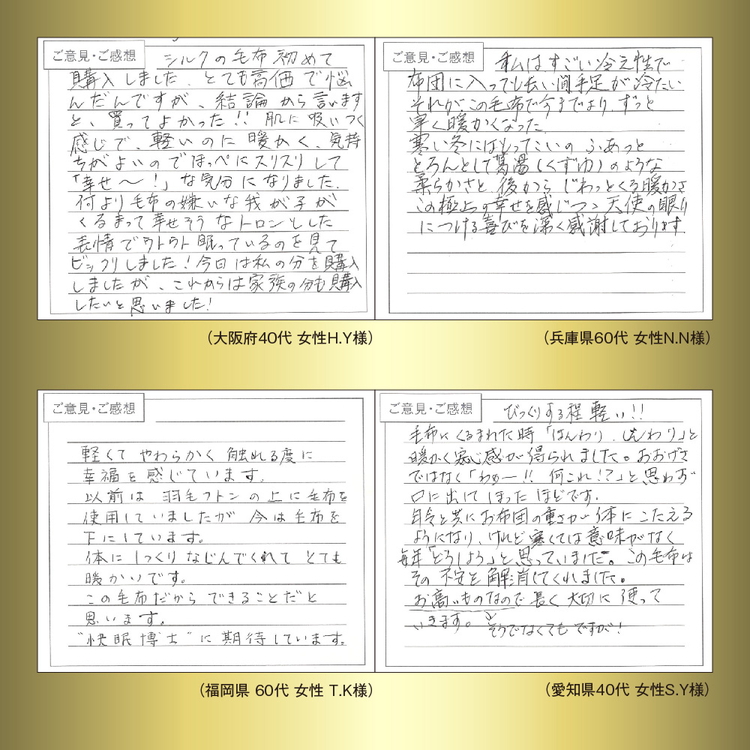 ご意見・ご感想
シルクの毛布初めて
購入しました。とても高価で悩
んだんですが、結論から言います
と、買ってよかった!!肌に吸いつく
感じで、軽いのに暖かく、気持
ちがよいのでほっぺにスリスリして
「幸せ〜!」な気分になりました。
何より毛布の嫌いな我が子が
くるまって幸せそうなトロンとした
表情でウトウト眠っているのを見て
ビックリしました!今回は私の分を購入
しましたが、これからは家族の分も購入
したいと思いました!
(大阪府40代 女性H.Y様)
ご意見・ご感想
私はすごい冷え性で
布団に入っても長い間手足が冷たい
それがこの毛布で今までより ずっと
早く暖かくなった。
寒い冬にはもってこいの ふあっと
とろんとして葛湯(くずゆ)のような
柔らかさと 後から じわっとくる暖かさ
この極上の幸せを感じつつ 天使の眠り
につける喜びを深く感謝しております。
(兵庫県60代 女性N.N様)
ご意見・ご感想
軽くて やわらかく 触れる度に
幸福を感じています。
以前は 羽毛フトンの上に毛布を
使用していましたが 今は毛布を
下にしています。
体に しっくりなじんでくれて とても
暖かいです。
この毛布だから できることだと
思います。
"快眠博士"に期待しています。
(福岡県 60代 女性 T.K様)
ご意見・ご感想
びっくりする程 軽い!!
毛布にくるまれた時「ほんわり、じんわり」と
暖かく 感が得られました。おおげさ
ではなく「わぁー!! 何これ!?」と思わず
口に出てしまったほどです。
年令と共にお布団の重さが体に こたえる
ようになり、けれど寒くては意味がなく
毎年「どうしよう」と思っていました。この毛布は
その 不安を解消してくれました。
お高いものなので 長く大切に使って
いきます。そうでなくてもですが!
(愛知県40代 女性S.Y様)